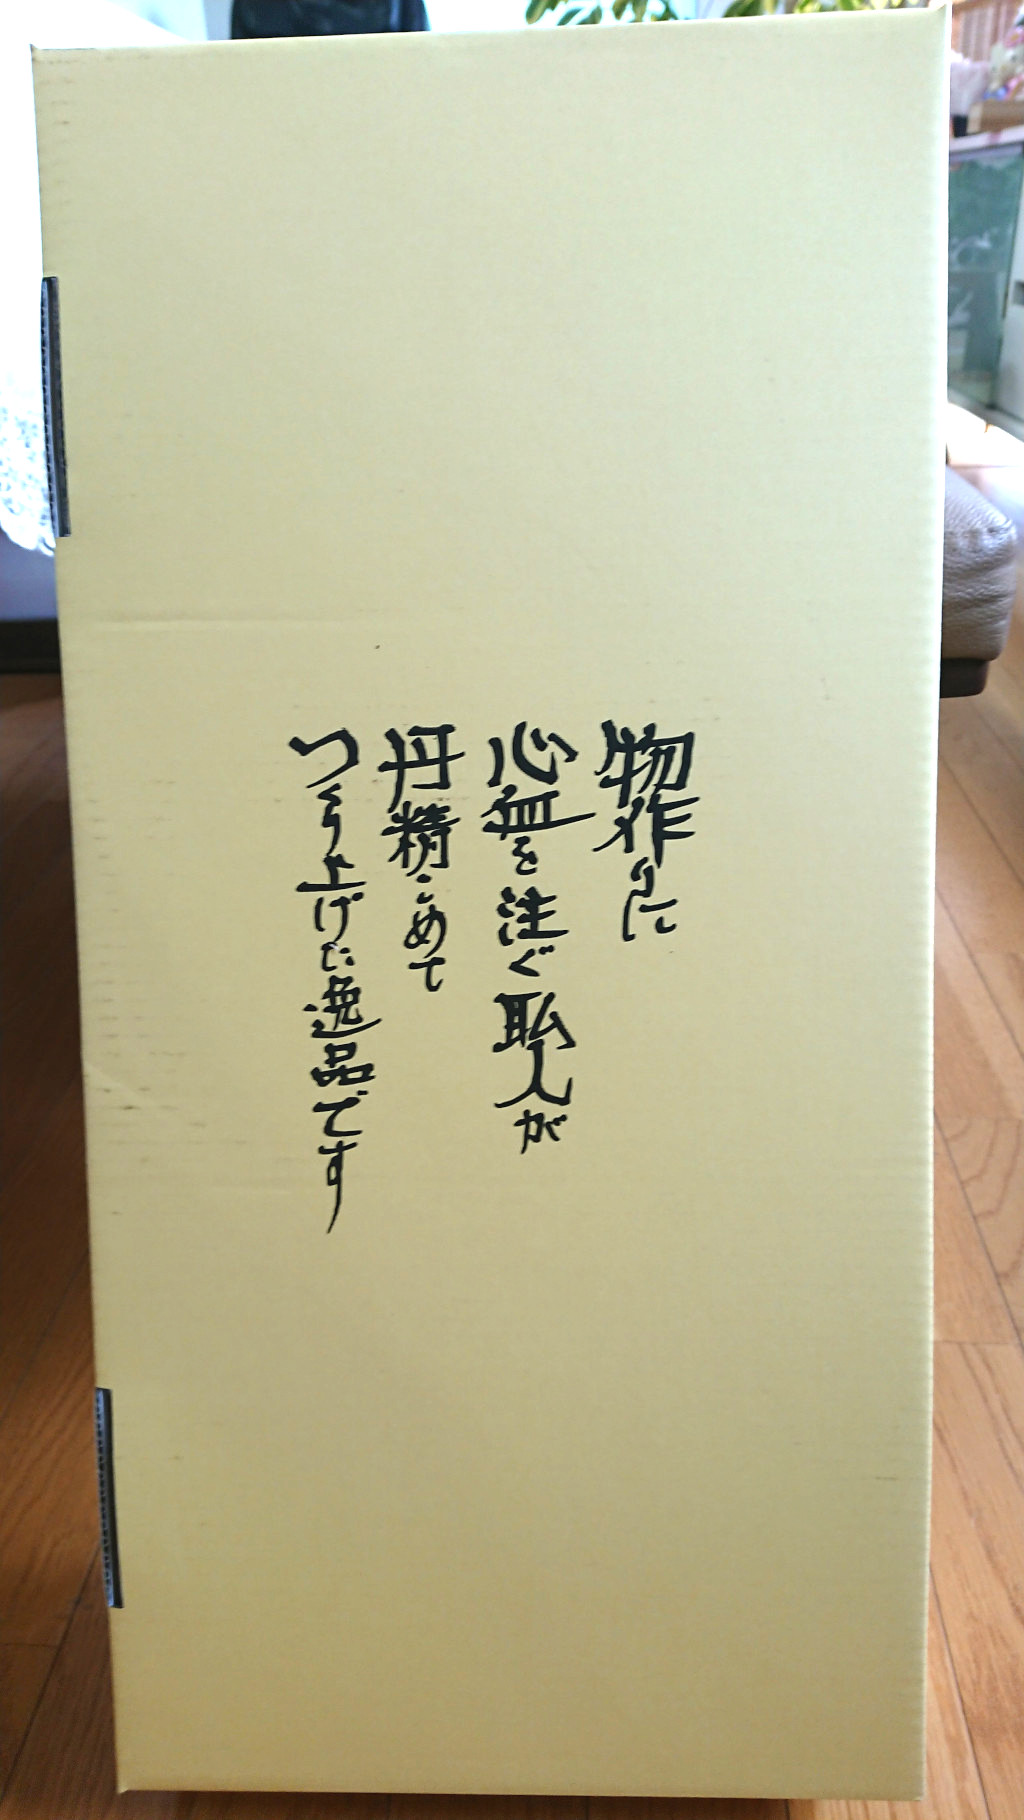 物作りに
心血を注ぐ耺人が
丹精こめて
つくり上げた逸品です